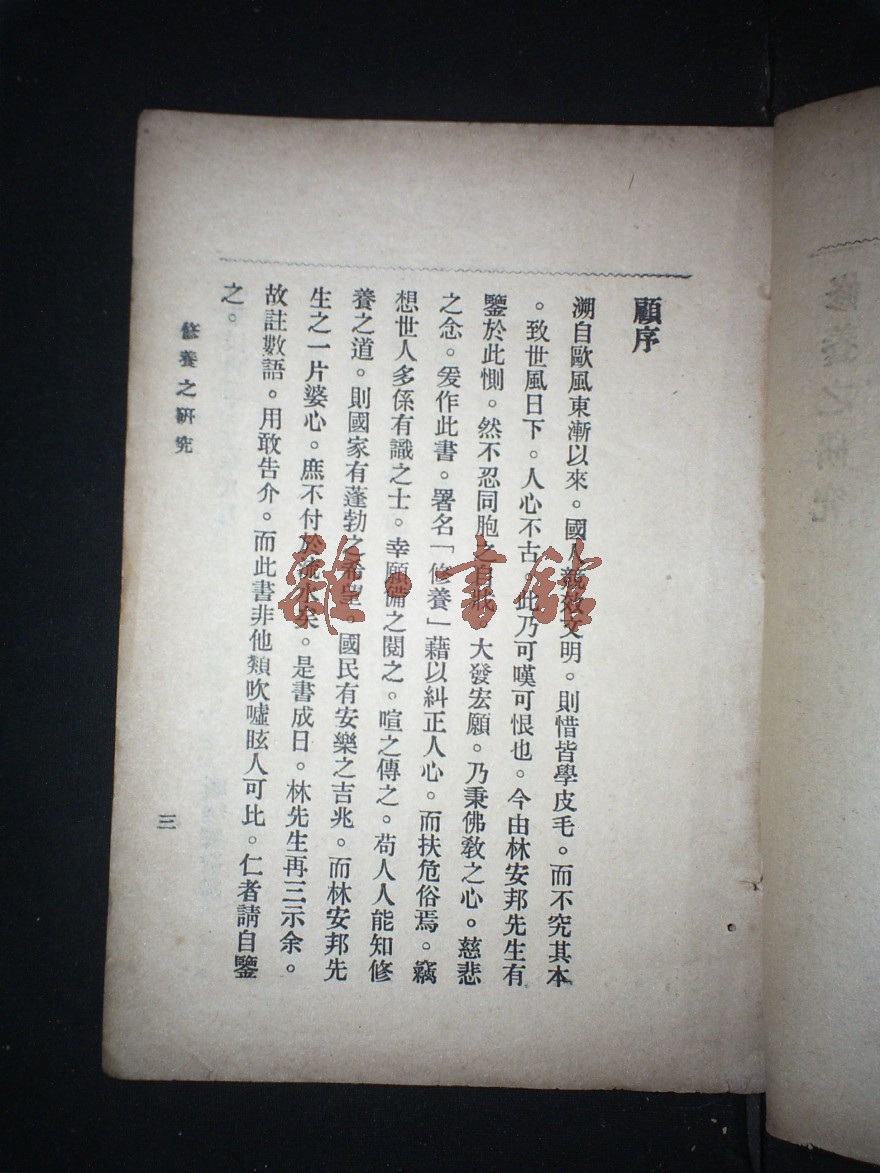 顧序
溯自歐風東漸以來。國人競效文明。則惜皆學皮毛。而不究其本
。致世風日下。人心不古。此乃可嘆可恨也。今由林安邦先生有
鑒於此惻。然不忍同胞之自戕。大發宏願。乃秉佛教之心。慈悲
之念。爰作此書。署名「修養」藉以糾正人心。而扶危俗焉。竊
想世人多係有識之士。幸願備之閱之。喧之傳之。苟人人能知修
養之道。則國家有蓬勃之希望。國民有安樂之吉兆。而林安邦先
生之一片婆心。庶不付於流水矣。是書成日。林先生再三示余。
故註數語。用敢告介。而此書非他類吹噓眩人可比。仁者請自鑒
之。
修養之研究
三
雜·書館